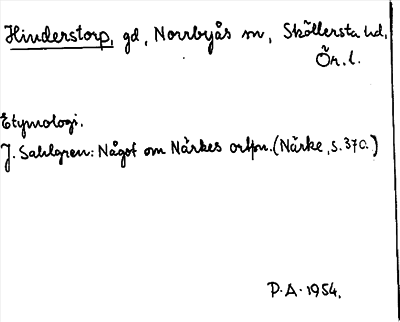 Hinderstorp, gd, Norrbyås sn, Sköllersta hd,
Ör. l.
Etymologi.
J. Sahlgren: Något om Närkes ortpn. (Närke, s. 370.)
P. A. 1954.